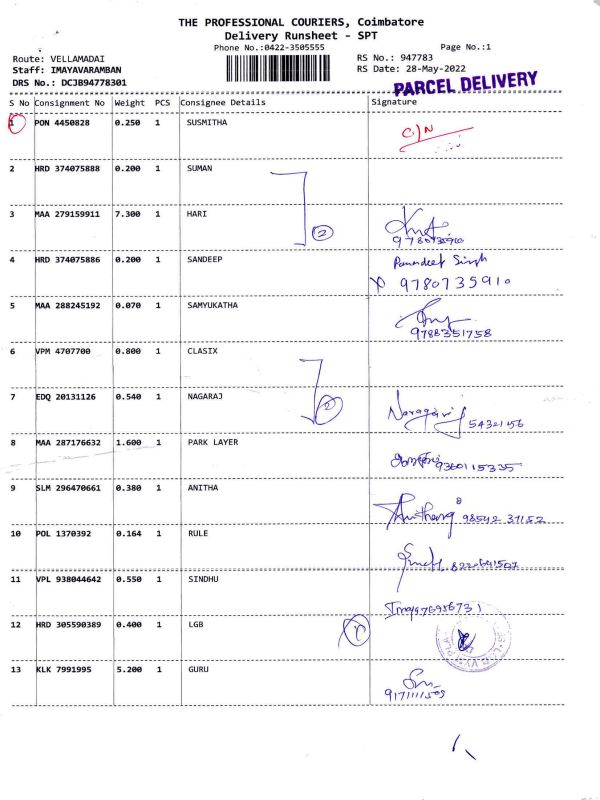 THE PROFESSIONAL COURIERS, Coimbatore
Delivery Runsheet - SPT
Phone No.:0422-3505555 Page No.:1
Route: VELLAMADAI RS No.: 947783
Staff: IMAYAVARAMBAN RS Date: 28-May-2022
DRS No.: DCJB94778301 PARCEL DELIVERY
S No Consignment No Weight PCS Consignee Details Signature
1 PON 4450828 0.250 1 SUSMITHA C/N
2 HRD 374075888 0.200 1 SUMAN
3 MAA 279159911 7.300 1 HARI 2
9780735910
4 HRD 374075886 0.200 1 SANDEEP Singh
9780735910
5 MAA 288245192 0.070 1 SAMYUKATHA
9788351758
6 VPM 4707700 0.800 1 CLASIX
7 EDQ 20131126 0.540 1 NAGARAJ 2
8 MAA 287176632 1.600 1 PARK LAYER 9360115335
9 SLM 296470661 0.380 1 ANITHA
10 POL 1370392 0.164 1 RULE
11 VPL 938044642 0.550 1 SINDHU
12 HRD 305590389 0.400 1 LGB
13 KLK 7991995 5.200 1 GURU